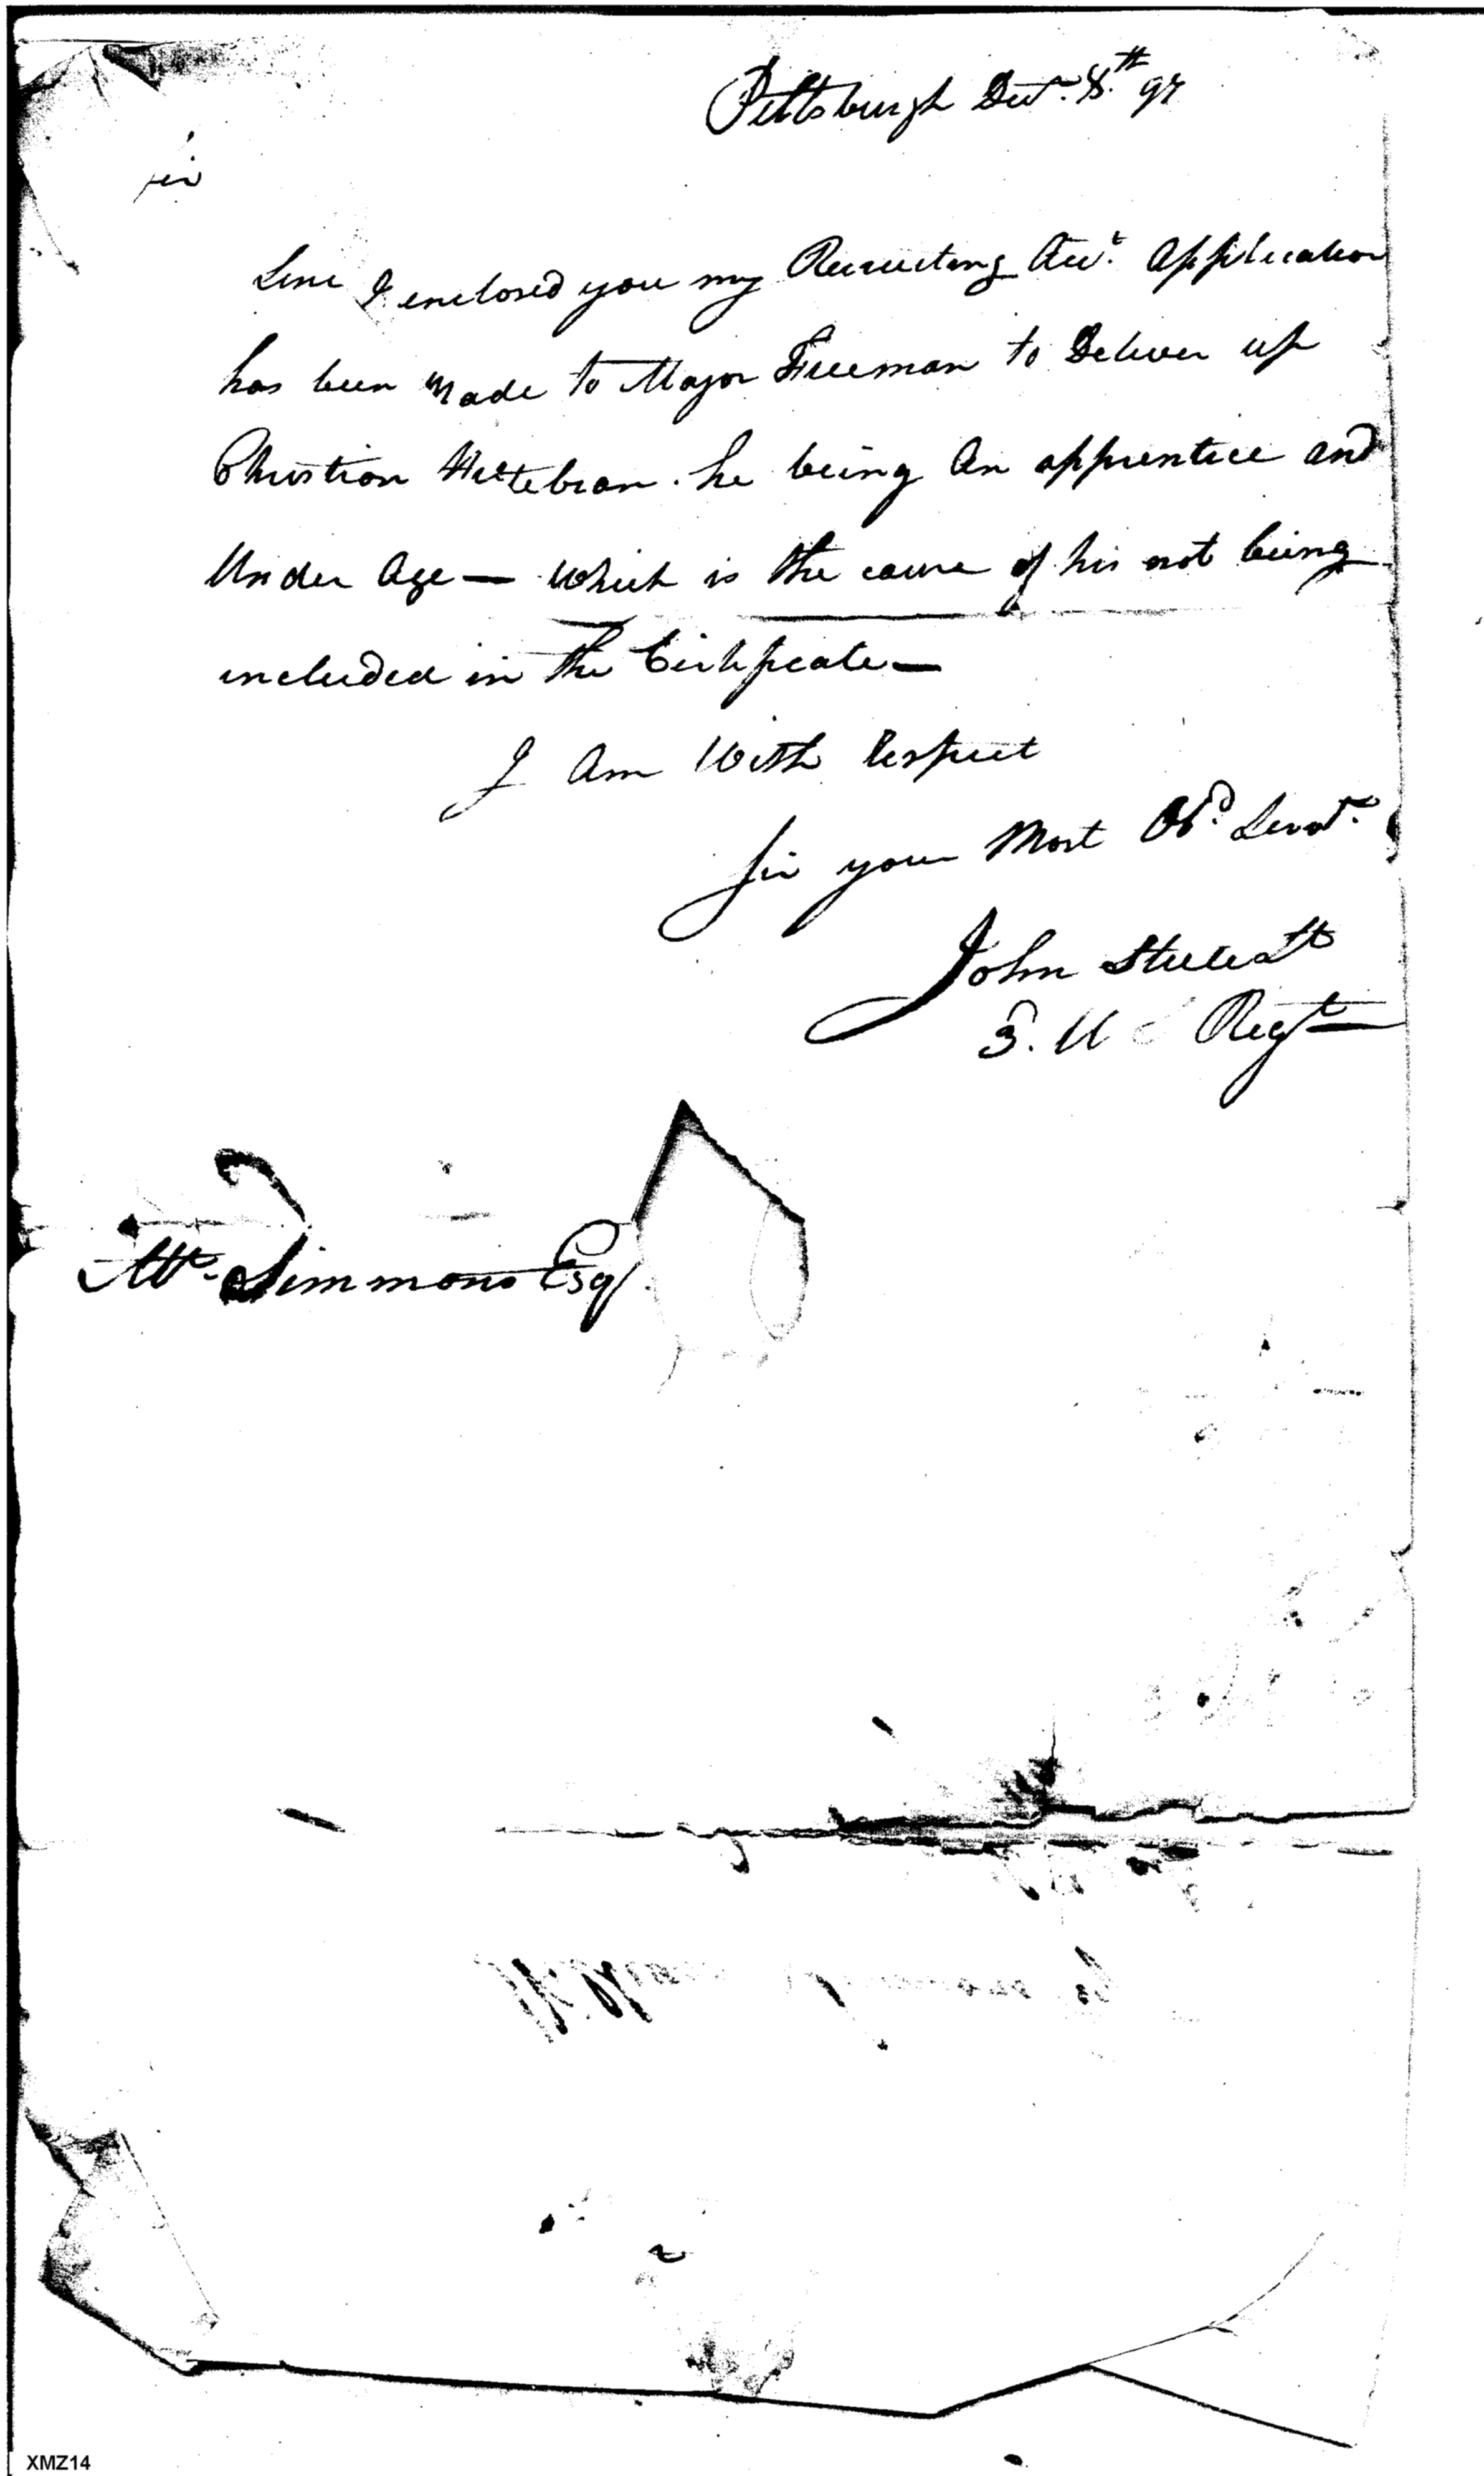 Pittsburgh Decr. 8.th 97
Sir
Since I enclosed you my Recruiting Acct. application
has been Made to Major Freeman to Deliver up
Christian he being An apprentice and
Under Age — which is the cause of his not being
included in the Certificate —
I Am With Respect
Sir your Most Obd. Servt.
John Steele Lt
3. U S Regt
Wm. Simmons Esqr.
XMZ14